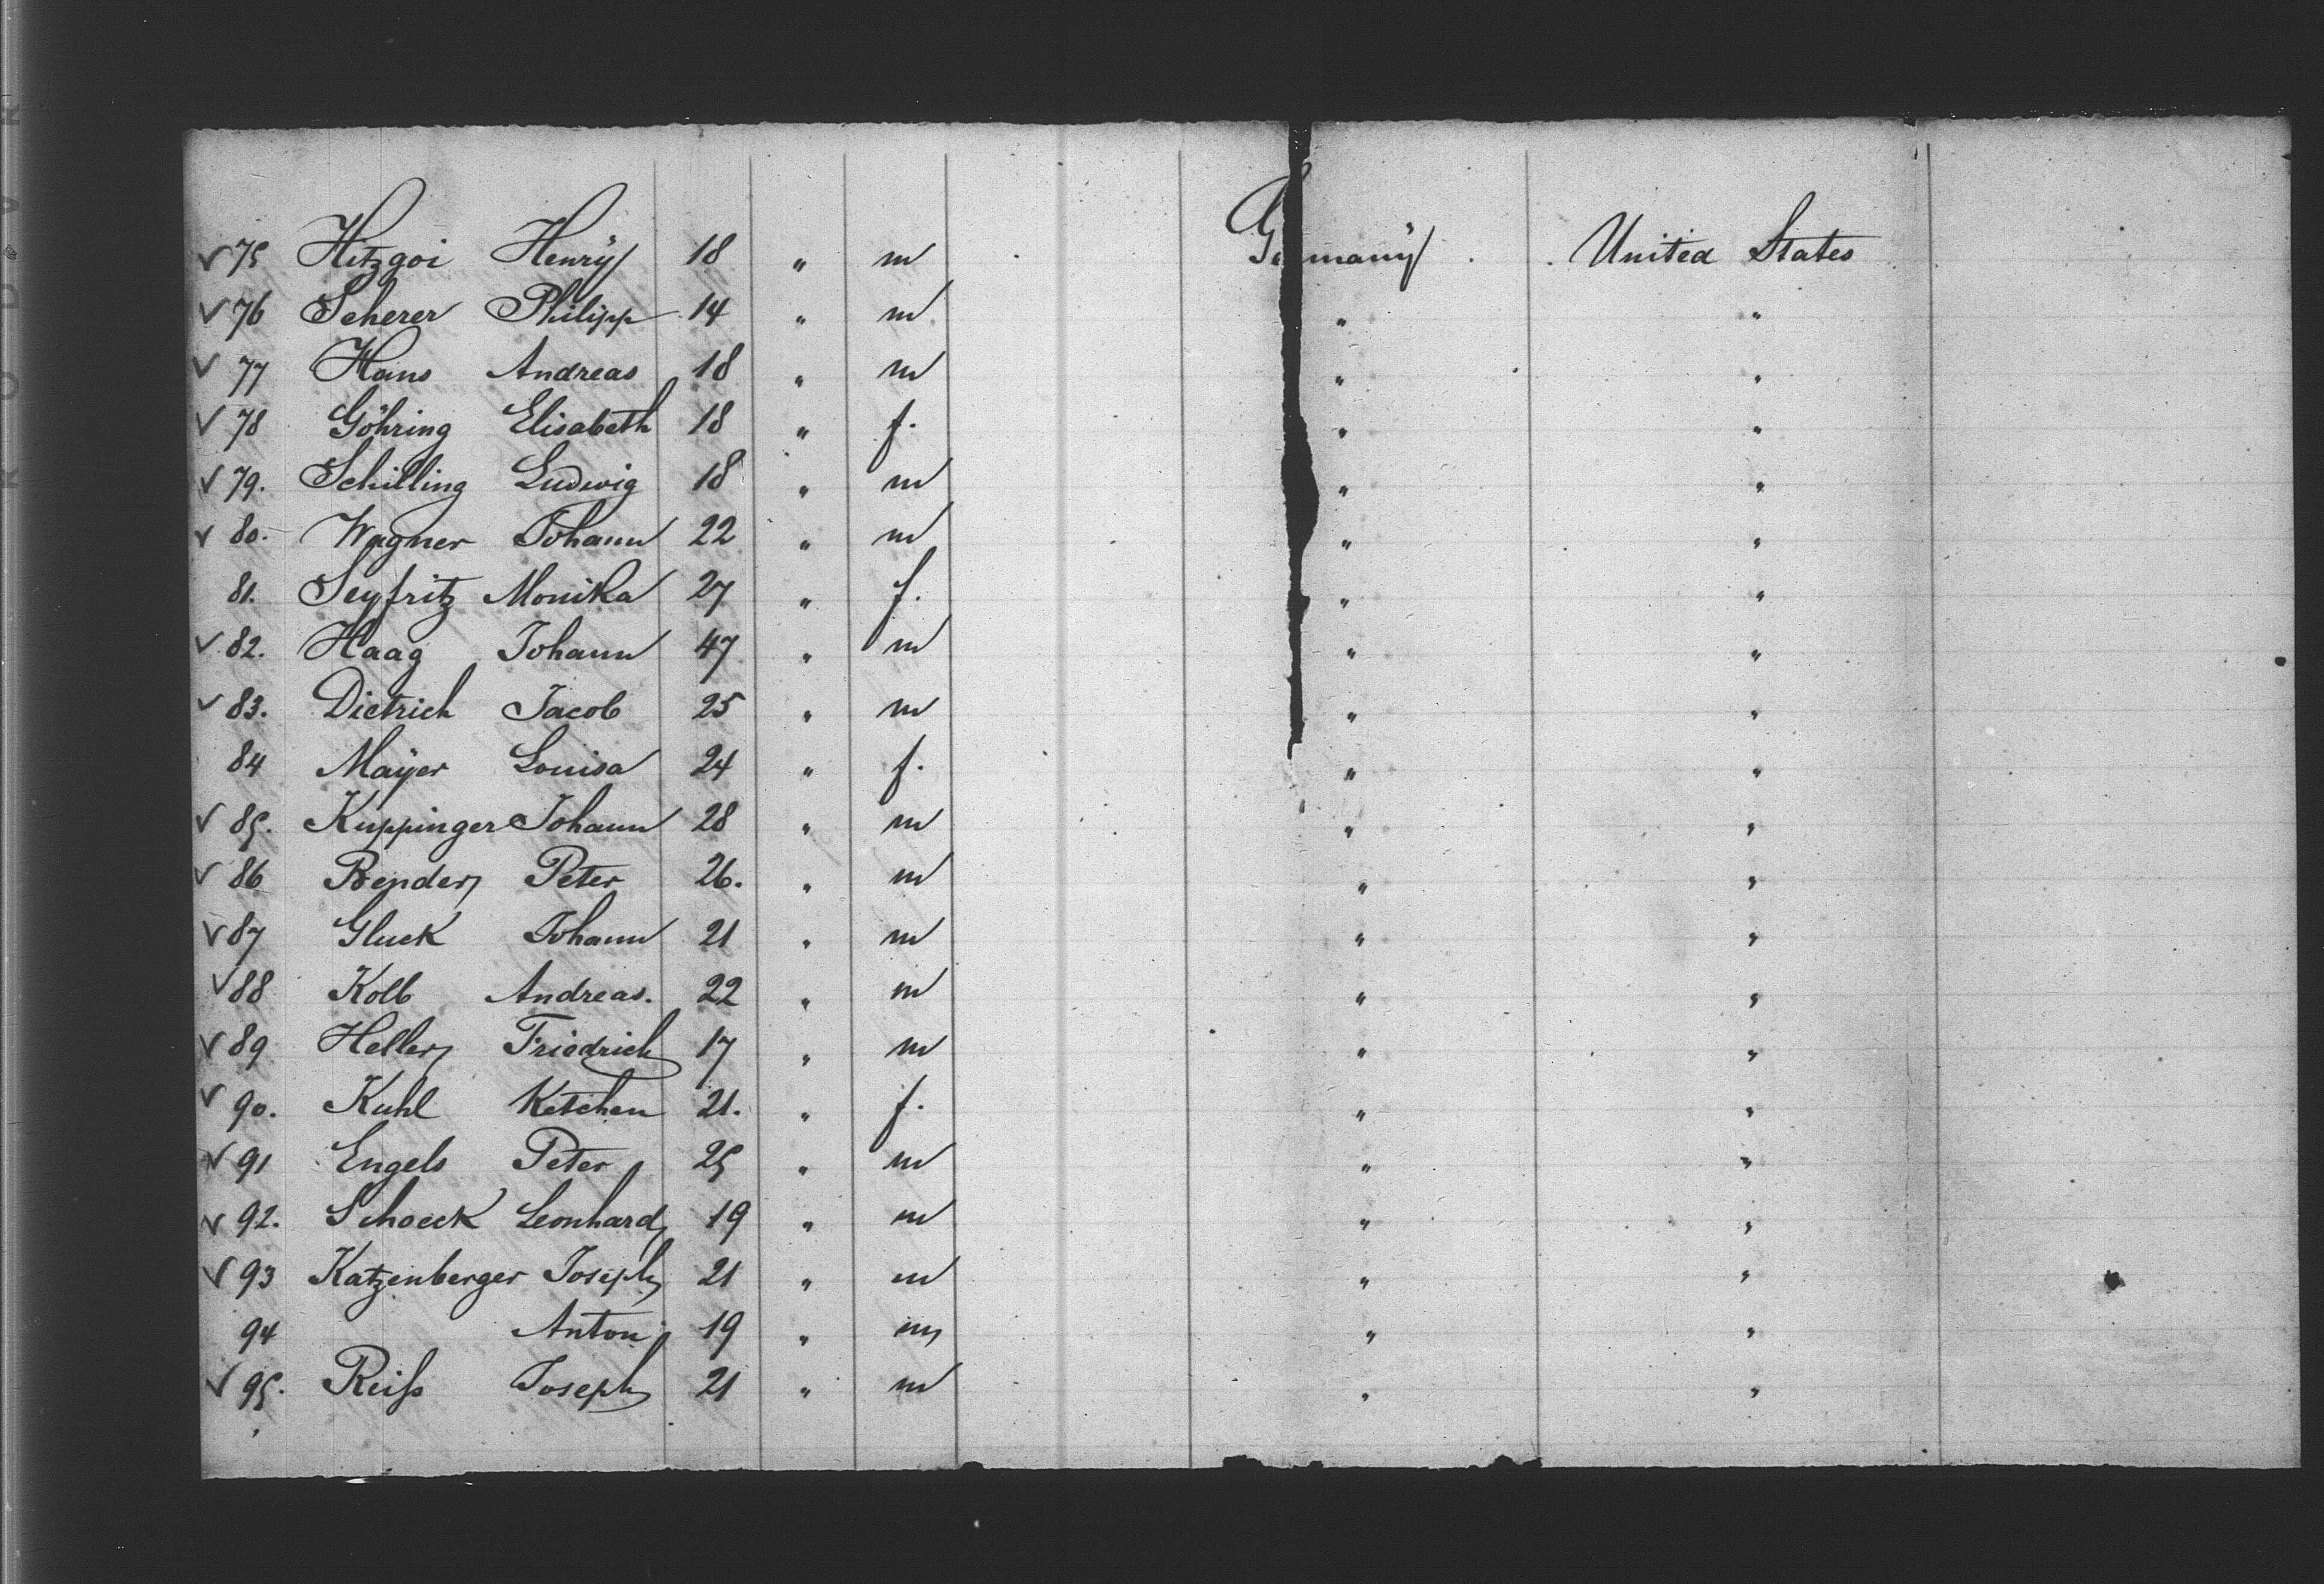 ✓ 75 Hitzgoi Henrÿ 18 " m Germanÿ . United States
✓ 76 Scherer Philipp 14 " m " "
✓ 77 Hans Andreas 18 " m " "
✓ 78 Göhring Elisabeth 18 " f. " "
✓ 79. Schilling Ludwig 18 " m " "
✓ 80. Wagner Johann 22 " m " "
81. Seyfritz Monika 27 " f. " "
✓ 82. Haag Johann 47 " m " "
✓ 83. Dietrich Jacob 25 " m " "
84 Maÿer Louisa 24 " f. " "
✓ 85. Kuppinger Johann 28 " m " "
✓ 86 Bender Peter 26. " m " "
✓ 87 Gluck Johann 21 " m " "
✓ 88 Kolb Andreas. 22 " m " "
✓ 89 Heller Friedrich 17 " m " "
✓ 90. Kuhl Ketchen 21. " f. " "
✓ 91 Engels Peter 25 " m " "
✓ 92. Schoeck Leonhard 19 " m " "
✓ 93 Katzenberger Joseph 21 " m " "
94 Anton 19 " m " "
✓ 95. Reiſs Joseph 21 " m " "